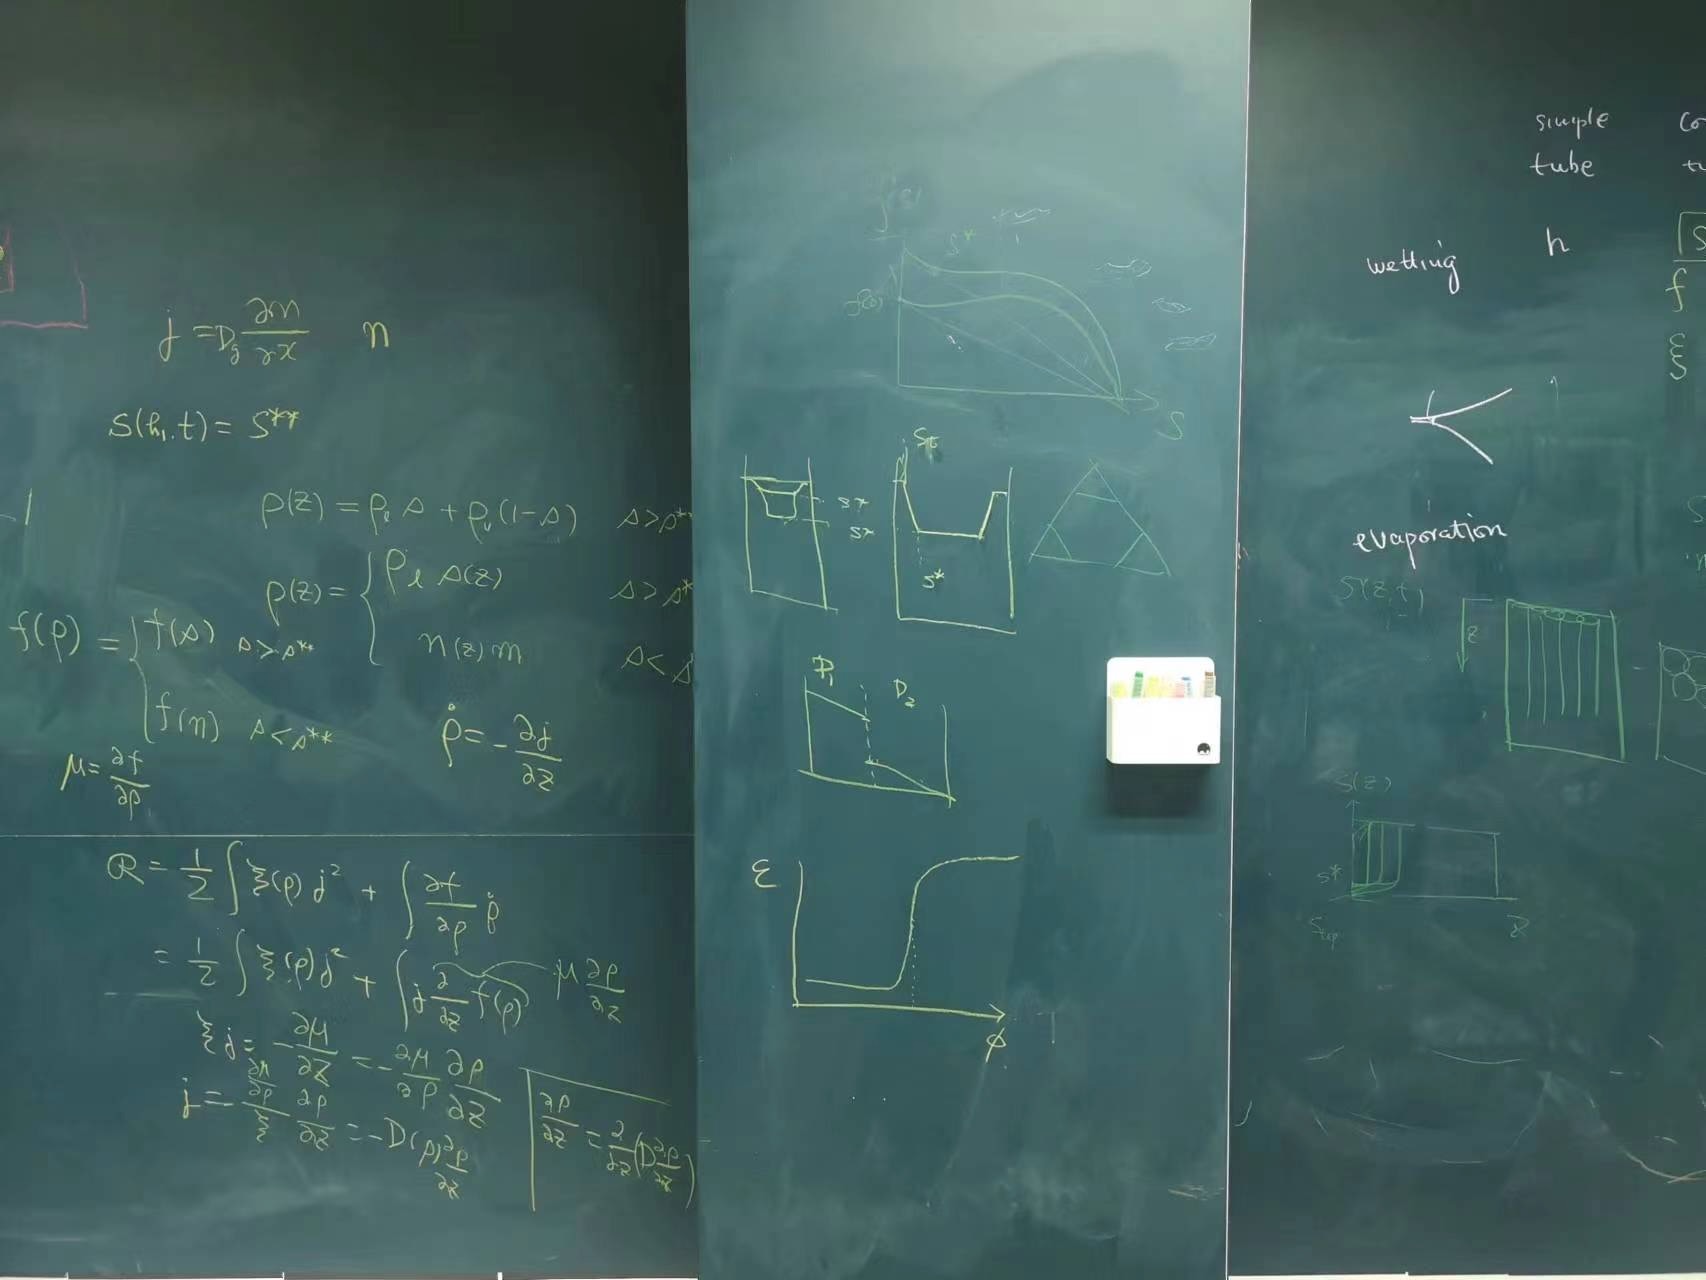 j = D_g ∂n/∂x    n
S(h₁,t) = S**
ρ(z) = ρ_ℓ s + ρ_v(1-s)    s>s**
ρ(z) = { ρ_ℓ s(z)    s>s*
n(z)m    s<s
f(ρ) = { f(s)    s>s**
f(n)    s<s**
ρ̇ = -∂j/∂z
μ = ∂f/∂ρ
R = 1/2 ∫ ξ(ρ) j² + ∫ ∂f/∂ρ ρ̇
= 1/2 ∫ ξ(ρ) j² + ∫ j ∂/∂z f(ρ)    μ ∂ρ/∂z
ξj = -∂μ/∂z = -∂μ/∂ρ ∂ρ/∂z
j = - (∂μ/∂ρ)/ξ ∂ρ/∂z = -D(ρ) ∂ρ/∂z
∂ρ/∂z = ∂/∂z (D ∂ρ/∂z)
S*
S
S*
S*
S*
D₁
D₂
ε
φ
simple
tube
wetting
h
f
ξ
evaporation
S(z,t)
z
S(z)
S*
S_top
z